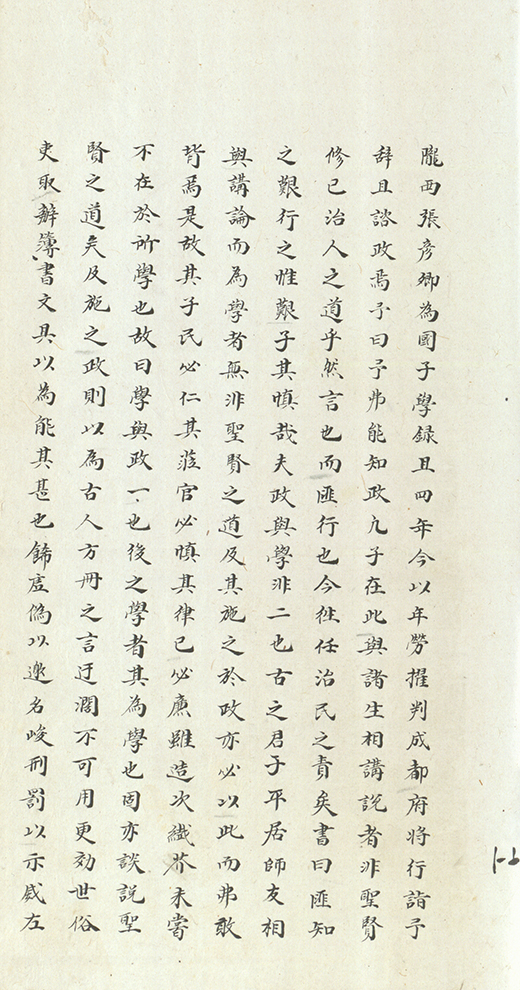 隴西張彥卿為國子學錄且四年今以年勞擢判成都府將行詣予
辞且諮政焉予曰予弗能知政九子在此與諸生相講說者非聖賢
修己治人之道乎然言也而匪行也今徃任治民之責矣書曰匪知
之艱行之惟艱子其慎哉夫政與學非二也古之君子平居師友相
與講論而為學者無非聖賢之道及其施之於政亦必以此而弗敢
背焉是故其子民必仁其蒞官必慎其律己必廉雖造次纎芥未嘗
不在於所學也故曰學與政一也後之學者其為學也固亦談說聖
賢之道矣及施之政則以為古人方冊之言迂濶不可用更効世俗
吏取辦簿書文具以為能其甚也飾虗偽以邀名峻刑罰以示威左